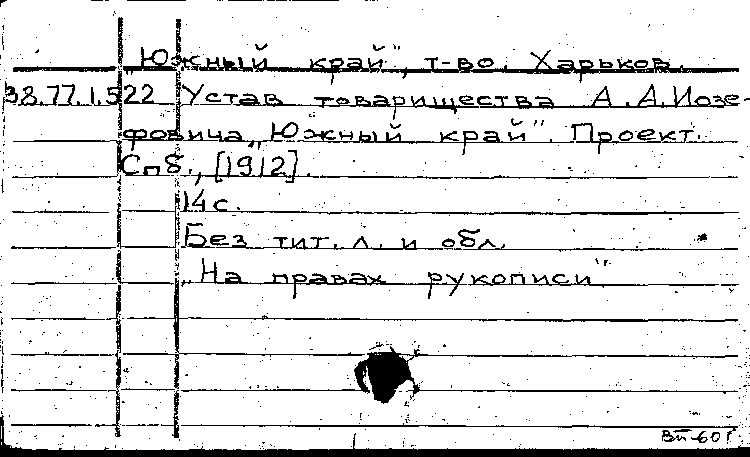 „Южный край", т-во. Харьков.
38.77.1.522 Устав товарищества А.А.Иозе-
фовича „Южный край". Проект.
Спб., [1912].
14с.
Без тит. л. и обл.
„На правах рукописи"